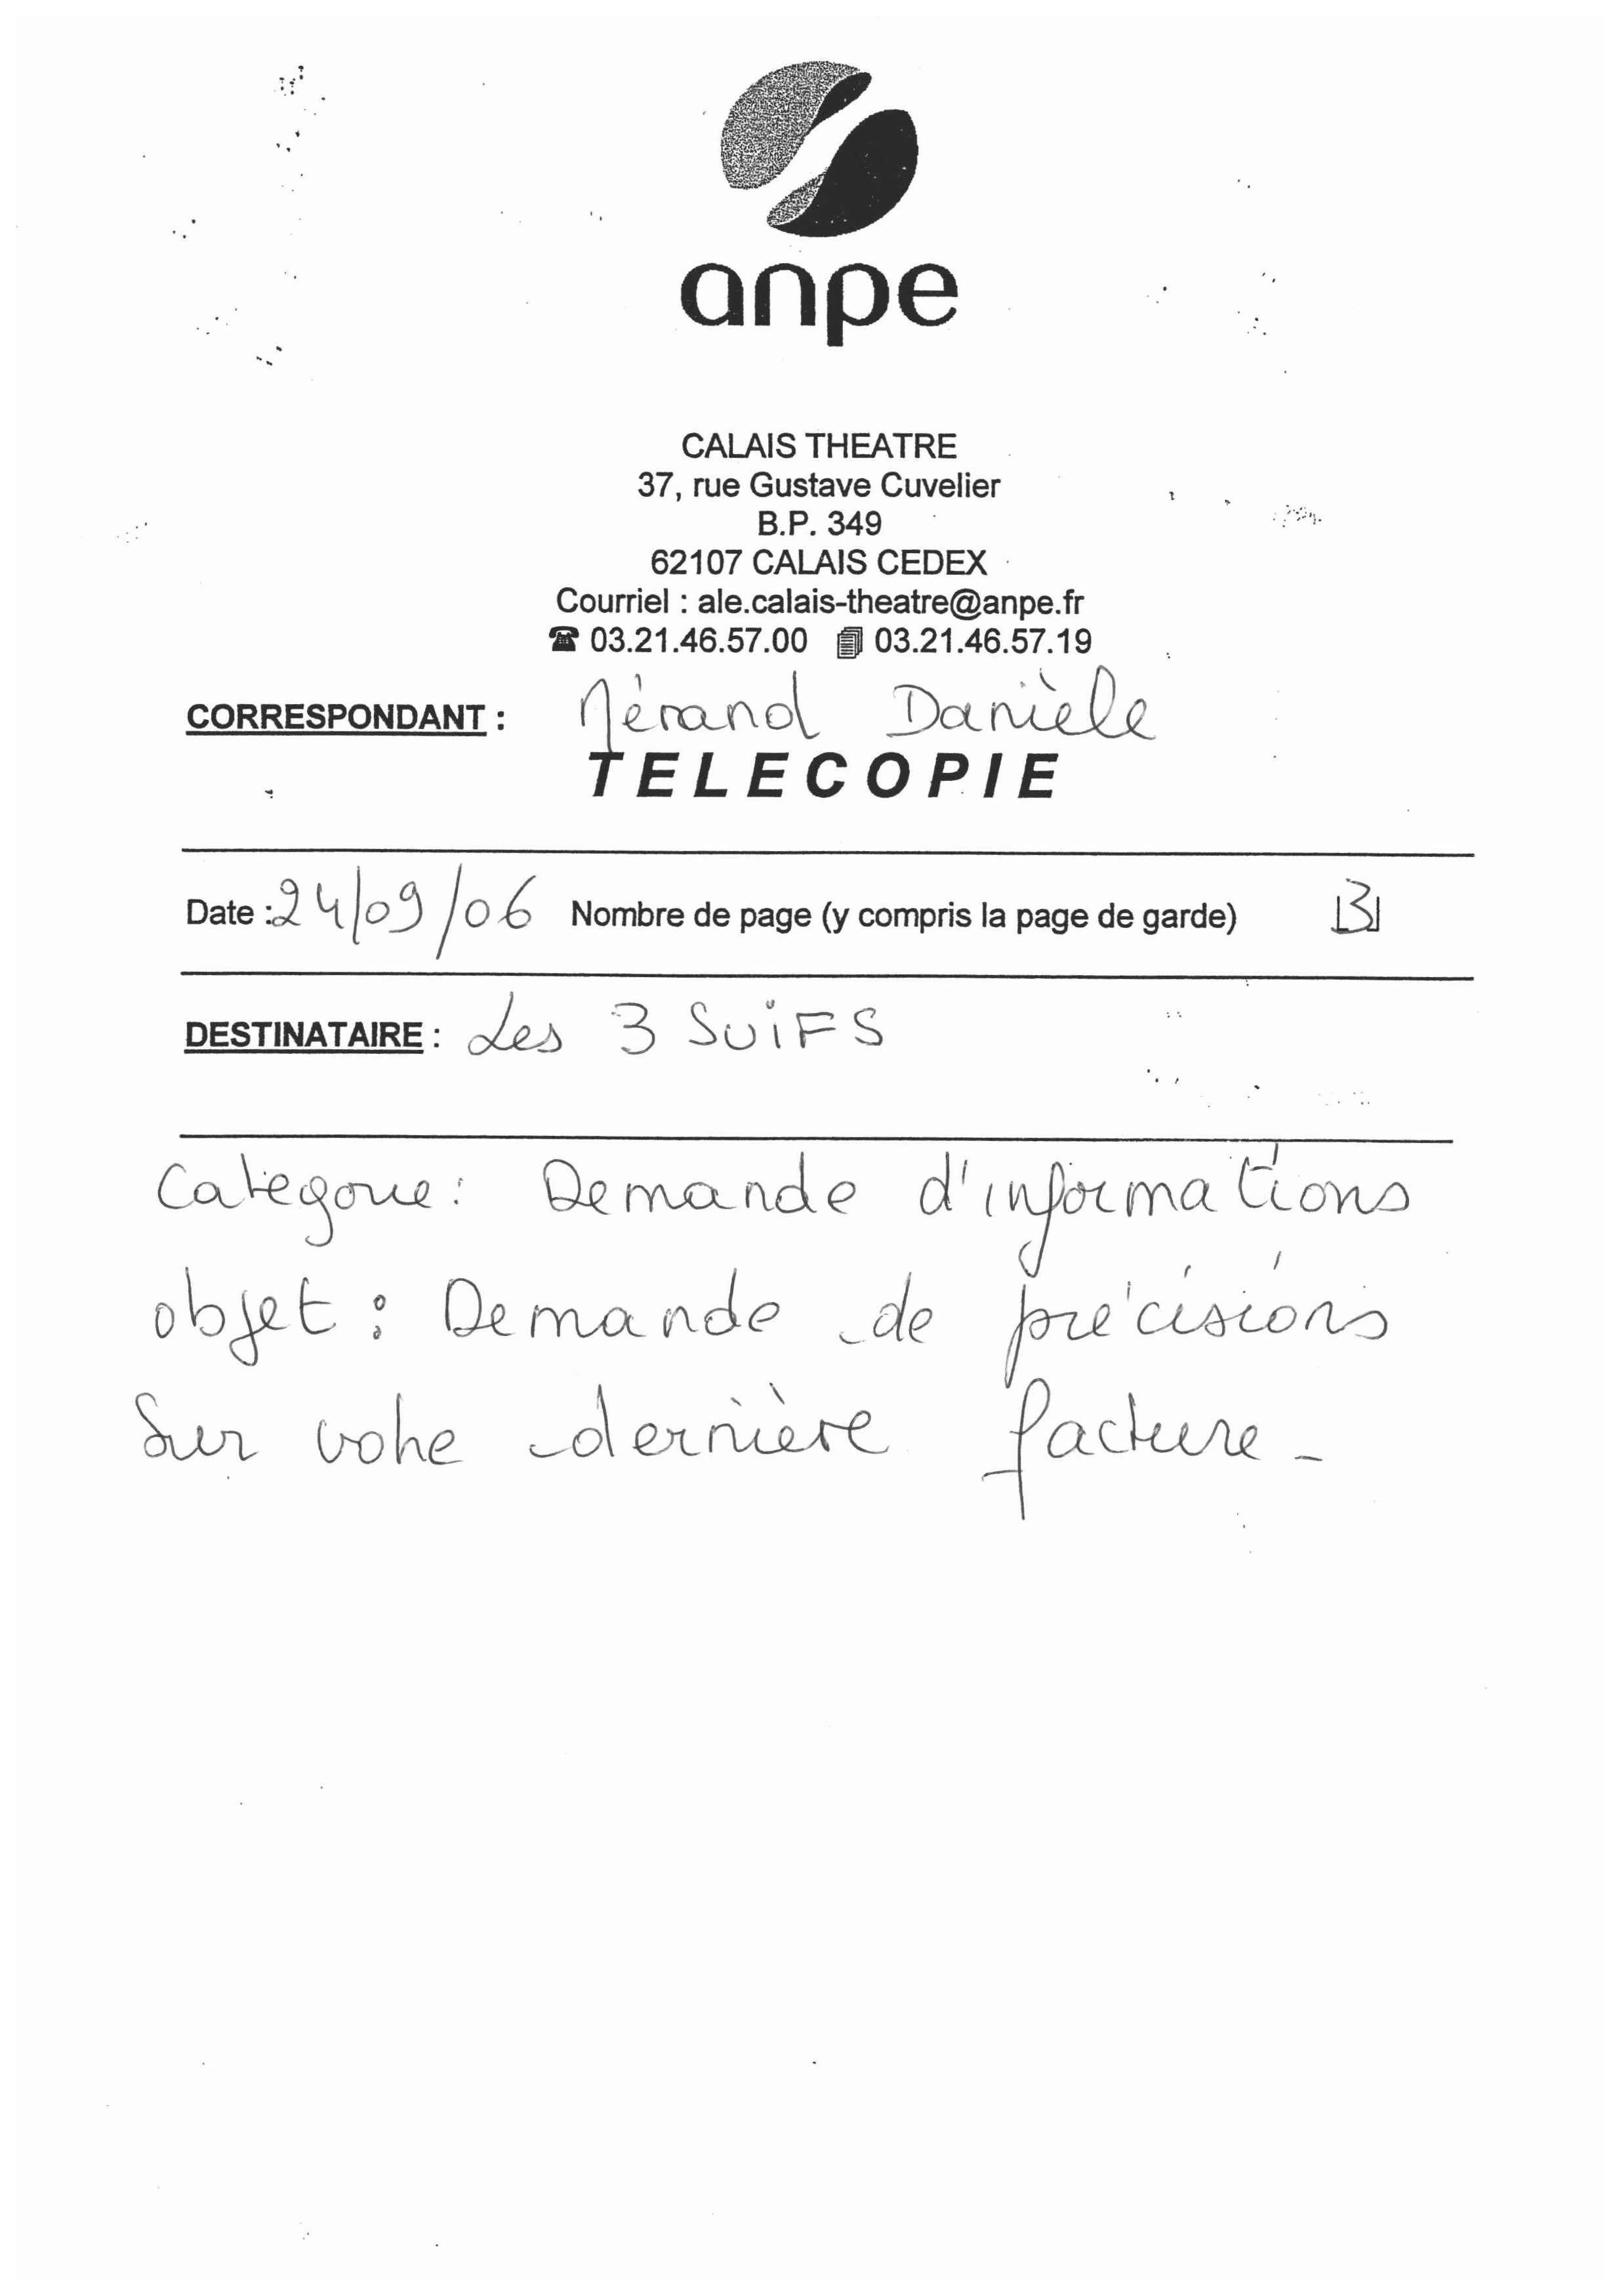 anpe
CALAIS THEATRE
37, rue Gustave Cuvelier
B.P. 349
62107 CALAIS CEDEX
Courriel : ale.calais-theatre@anpe.fr
☎ 03.21.46.57.00 03.21.46.57.19
CORRESPONDANT : Mérand Danièle
TELECOPIE
Date : 24/09/06 Nombre de page (y compris la page de garde) 3
DESTINATAIRE : Les 3 SuiFS
Categorie : Demande d'informations
objet : Demande de précisions
Sur votre dernière facture -